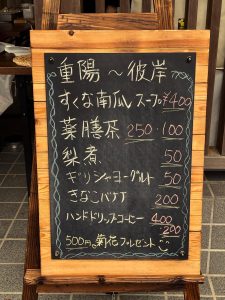 重陽〜彼岸
すくな南瓜スープ¥400
薬膳茶 250・100
梨煮 50
ギリシャヨーグルト 50
きなこバゲット 200
ハンドドリップコーヒー 400
200
500円〜菊花プレゼント